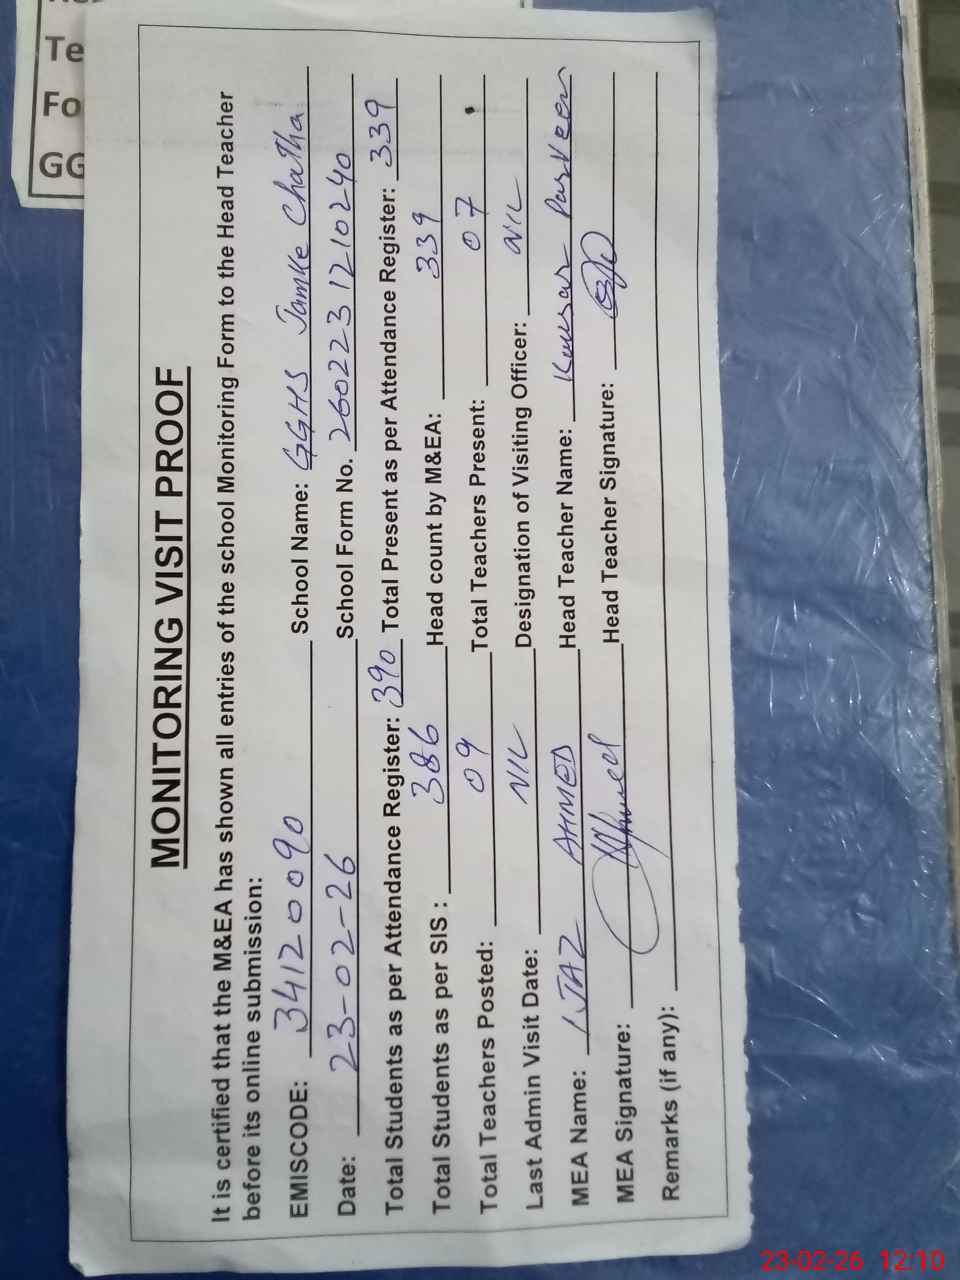 Te
Fo
GG
MONITORING VISIT PROOF
It is certified that the M&EA has shown all entries of the school Monitoring Form to the Head Teacher
before its online submission:
EMISCODE: 34120090 School Name: GGHS Jamke Chatha
Date: 23-02-26 School Form No. 2602231210240
Total Students as per Attendance Register: 390 Total Present as per Attendance Register: 339
Total Students as per SIS : 386 Head count by M&EA: 339
Total Teachers Posted: 09 Total Teachers Present: 07
Last Admin Visit Date: NIL Designation of Visiting Officer: NIL
MEA Name: IJAZ AHMED Head Teacher Name: Kousar Parveen
MEA Signature: Head Teacher Signature:
Remarks (if any):
23-02-26 12:10